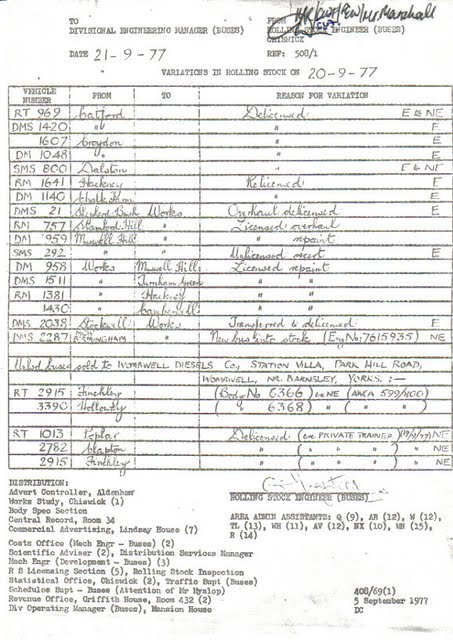 TO
DIVISIONAL ENGINEERING MANAGER (BUSES)
FROM
ROLLING STOCK ENGINEER (BUSES)
CHISWICK
Mr Marshall
DATE 21-9-77
REF: 508/1
VARIATIONS IN ROLLING STOCK ON 20-9-77
VEHICLE NUMBER FROM TO REASON FOR VARIATION
RT 969 Catford Delicensed E & NE
DMS 1420 " " E
1607 Croydon " E
DM 1048 " " E
SMS 800 Dalston " E & NE
RM 1641 Hackney Relicensed E
DM 1140 Chalk Farm " E
DMS 21 Shepherds Bush Works Overhaul delicensed E
RM 757 Stamford Hill " Licensed overhaul
DM 959 Muswell Hill " " repaint
SMS 292 " " Unlicensed recert E
DM 958 Works Muswell Hill Licensed repaint
DMS 1511 " Turnham Green " "
RM 1381 " Hackney " "
1430 " Camberwell " "
DMS 2038 Stockwell Works Transferred & delicensed E
DMS 2287 BIRMINGHAM " New bus into stock (Eng No: 7615935) NE
buses sold to WOMBWELL DIESELS Co, STATION VILLA, PARK HILL ROAD,
WOMBWELL, NR. BARNSLEY, YORKS. :—
RT 2915 Finchley (Body No 6366) NE (AREA 599/400)
3390 Holloway ( " 6368) " ( " " )
RT 1013 Poplar Delicensed (ex PRIVATE TRAINER) NE
2782 Clapton " ( " " ) " NE
2915 Finchley " ( " " ) " NE
ROLLING STOCK ENGINEER (BUSES)
DISTRIBUTION:
Advert Controller, Aldenham
Works Study, Chiswick (1)
Body Spec Section
Central Record, Room 34
Commercial Advertising, Lindsay House (7)
AREA ADMIN ASSISTANTS: Q (9), AR (12), W (12),
TL (13), WH (11), AV (12), NX (10), MH (15),
R (14)
Costs Office (Mech Engr - Buses) (2)
Scientific Adviser (2), Distribution Services Manager
Mech Engr (Development - Buses) (3)
R S Licensing Section (5), Rolling Stock Inspection
Statistical Office, Chiswick (2), Traffic Supt (Buses)
Schedules Supt - Buses (Attention of Mr Hyslop)
Revenue Office, Griffith House, Room 432 (2)
Div Operating Manager (Buses), Mansion House
408/69(1)
5 September 1977
DC